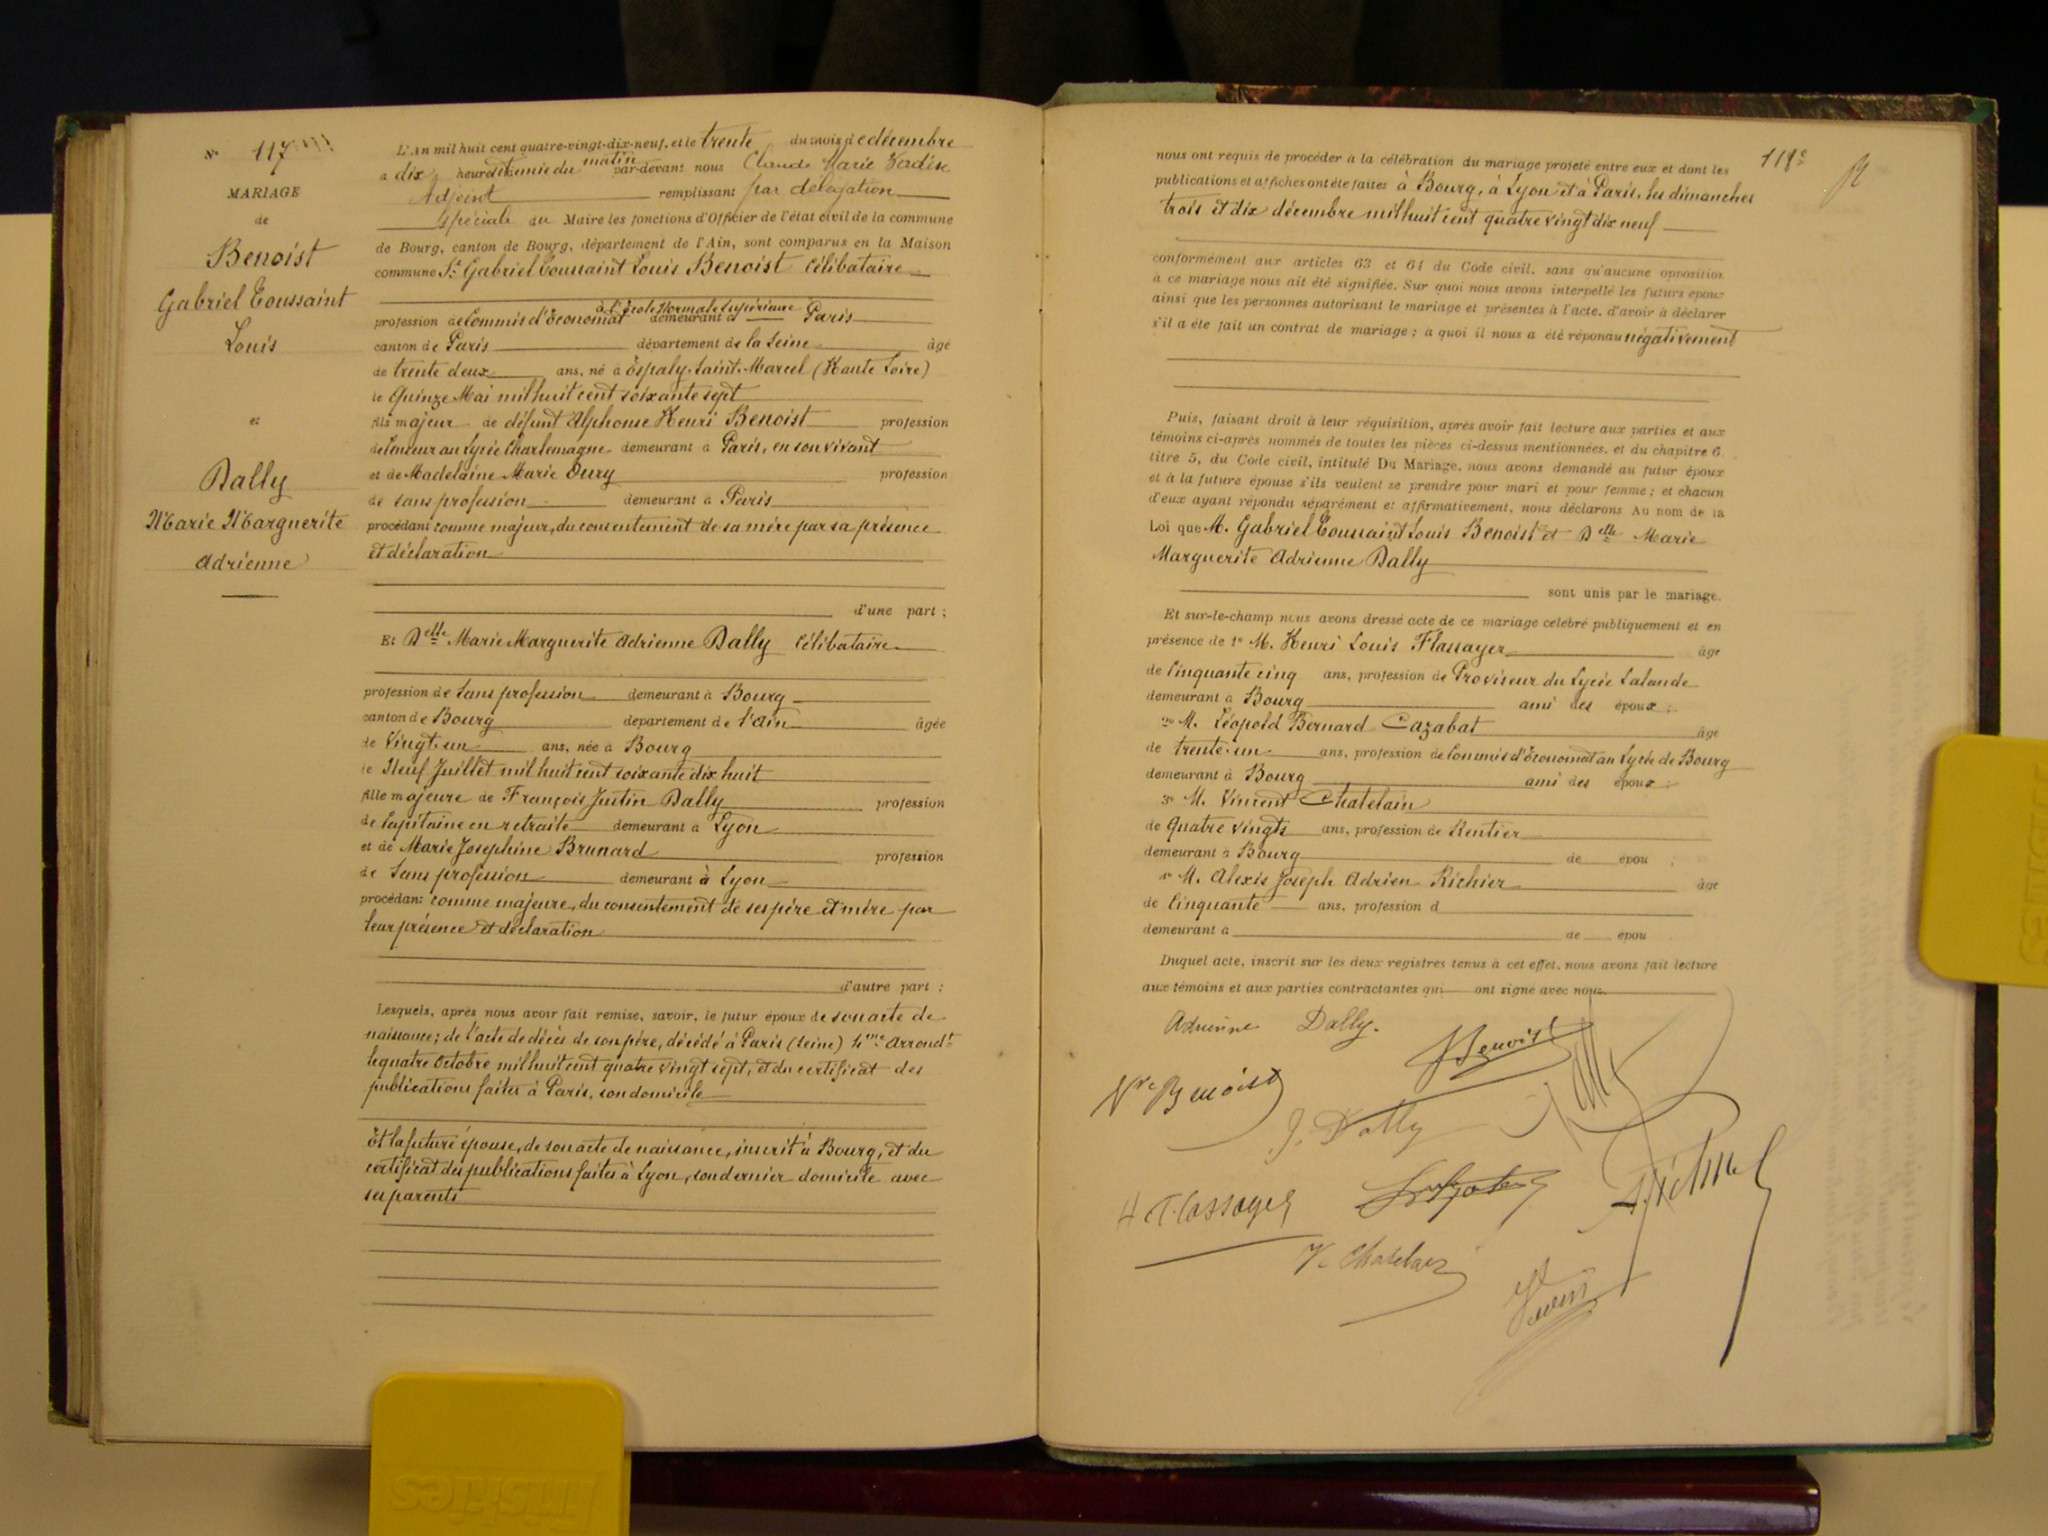 N° 117
MARIAGE
de
Benoist
Gabriel Toussaint
Louis
et
Dally
Marie Marguerite
Adrienne
L'An mil huit cent quatre-vingt-dix-neuf, et le trente du mois de décembre
à dix heures et demie du matin par-devant nous Claude Marie
Adjoint remplissant par délégation
spéciale du Maire les fonctions d'Officier de l'état civil de la commune
de Bourg, canton de Bourg, département de l'Ain, sont comparus en la Maison
commune Sr Gabriel Toussaint Louis Benoist célibataire
à l'École Normale Supérieure
profession de Commis d'Économat demeurant à Paris
canton de Paris département de la Seine âgé
de trente deux ans, né à Espaly-Saint-Marcel (Haute Loire)
le Quinze Mai mil huit cent soixante sept
fils majeur de défunt Alphonse Henri Benoist profession
de Censeur au Lycée Charlemagne demeurant à Paris, en son vivant
et de Madelaine Marie Oury profession
de sans profession demeurant à Paris
procédant comme majeur, du consentement de sa mère par sa présence
et déclaration
d'une part ;
Et Delle Marie Marguerite Adrienne Dally célibataire
profession de sans profession demeurant à Bourg
canton de Bourg département de l'Ain âgée
de vingt-un ans, née à Bourg
le Neuf Juillet mil huit cent soixante dix huit
fille majeure de François Justin Dally profession
de Capitaine en retraite demeurant à Lyon
et de Marie Josephine Brunard profession
de Sans profession demeurant à Lyon
procédant comme majeure, du consentement de ses père et mère par
leur présence et déclaration
d'autre part ;
Lesquels, après nous avoir fait remise, savoir, le futur époux de son acte de
naissance ; de l'acte de décès de son père, décédé à Paris (Seine) 4me Arrondt
le quatre Octobre mil huit cent quatre vingt sept, et du certificat des
publications faites à Paris, son domicile
Et la future épouse, de son acte de naissance, inscrit à Bourg, et du
certificat des publications faites à Lyon, son dernier domicile avec
ses parents
118e
nous ont requis de procéder à la célébration du mariage projeté entre eux et dont les
publications et affiches ont été faites à Bourg, à Lyon et à Paris, les dimanches
trois et dix décembre mil huit cent quatre vingt dix neuf
conformément aux articles 63 et 64 du Code civil, sans qu'aucune opposition
à ce mariage nous ait été signifiée. Sur quoi nous avons interpellé les futurs époux
ainsi que les personnes autorisant le mariage et présentes à l'acte, d'avoir à déclarer
s'il a été fait un contrat de mariage ; à quoi il nous a été répondu négativement
Puis, faisant droit à leur réquisition, après avoir fait lecture aux parties et aux
témoins ci-après nommés de toutes les pièces ci-dessus mentionnées, et du chapitre 6,
titre 5, du Code civil, intitulé Du Mariage, nous avons demandé au futur époux
et à la future épouse s'ils veulent se prendre pour mari et pour femme ; et chacun
d'eux ayant répondu séparément et affirmativement, nous déclarons Au nom de la
Loi que M. Gabriel Toussaint Louis Benoist et Delle Marie
Marguerite Adrienne Dally
sont unis par le mariage.
Et sur-le-champ nous avons dressé acte de ce mariage célébré publiquement et en
présence de 1° M. Henri Louis Flassayer âgé
de Cinquante cinq ans, profession de Proviseur du Lycée Lalande
demeurant à Bourg ami des époux ;
2° M. Léopold Bernard Cazabat âgé
de trente-un ans, profession de Commis d'Économat au Lycée de Bourg
demeurant à Bourg ami des époux ;
3° M. Vincent Chatelain
de Quatre vingts ans, profession de Rentier
demeurant à Bourg de épou ;
4° M. Alexis Joseph Adrien Richier âgé
de Cinquante ans, profession d
demeurant à de épou
Duquel acte, inscrit sur les deux registres tenus à cet effet, nous avons fait lecture
aux témoins et aux parties contractantes qui ont signé avec nous.
Adrienne Dally.
Benoist
Vve Benoist
J. Dally
H Flassayer
V. Chatelain